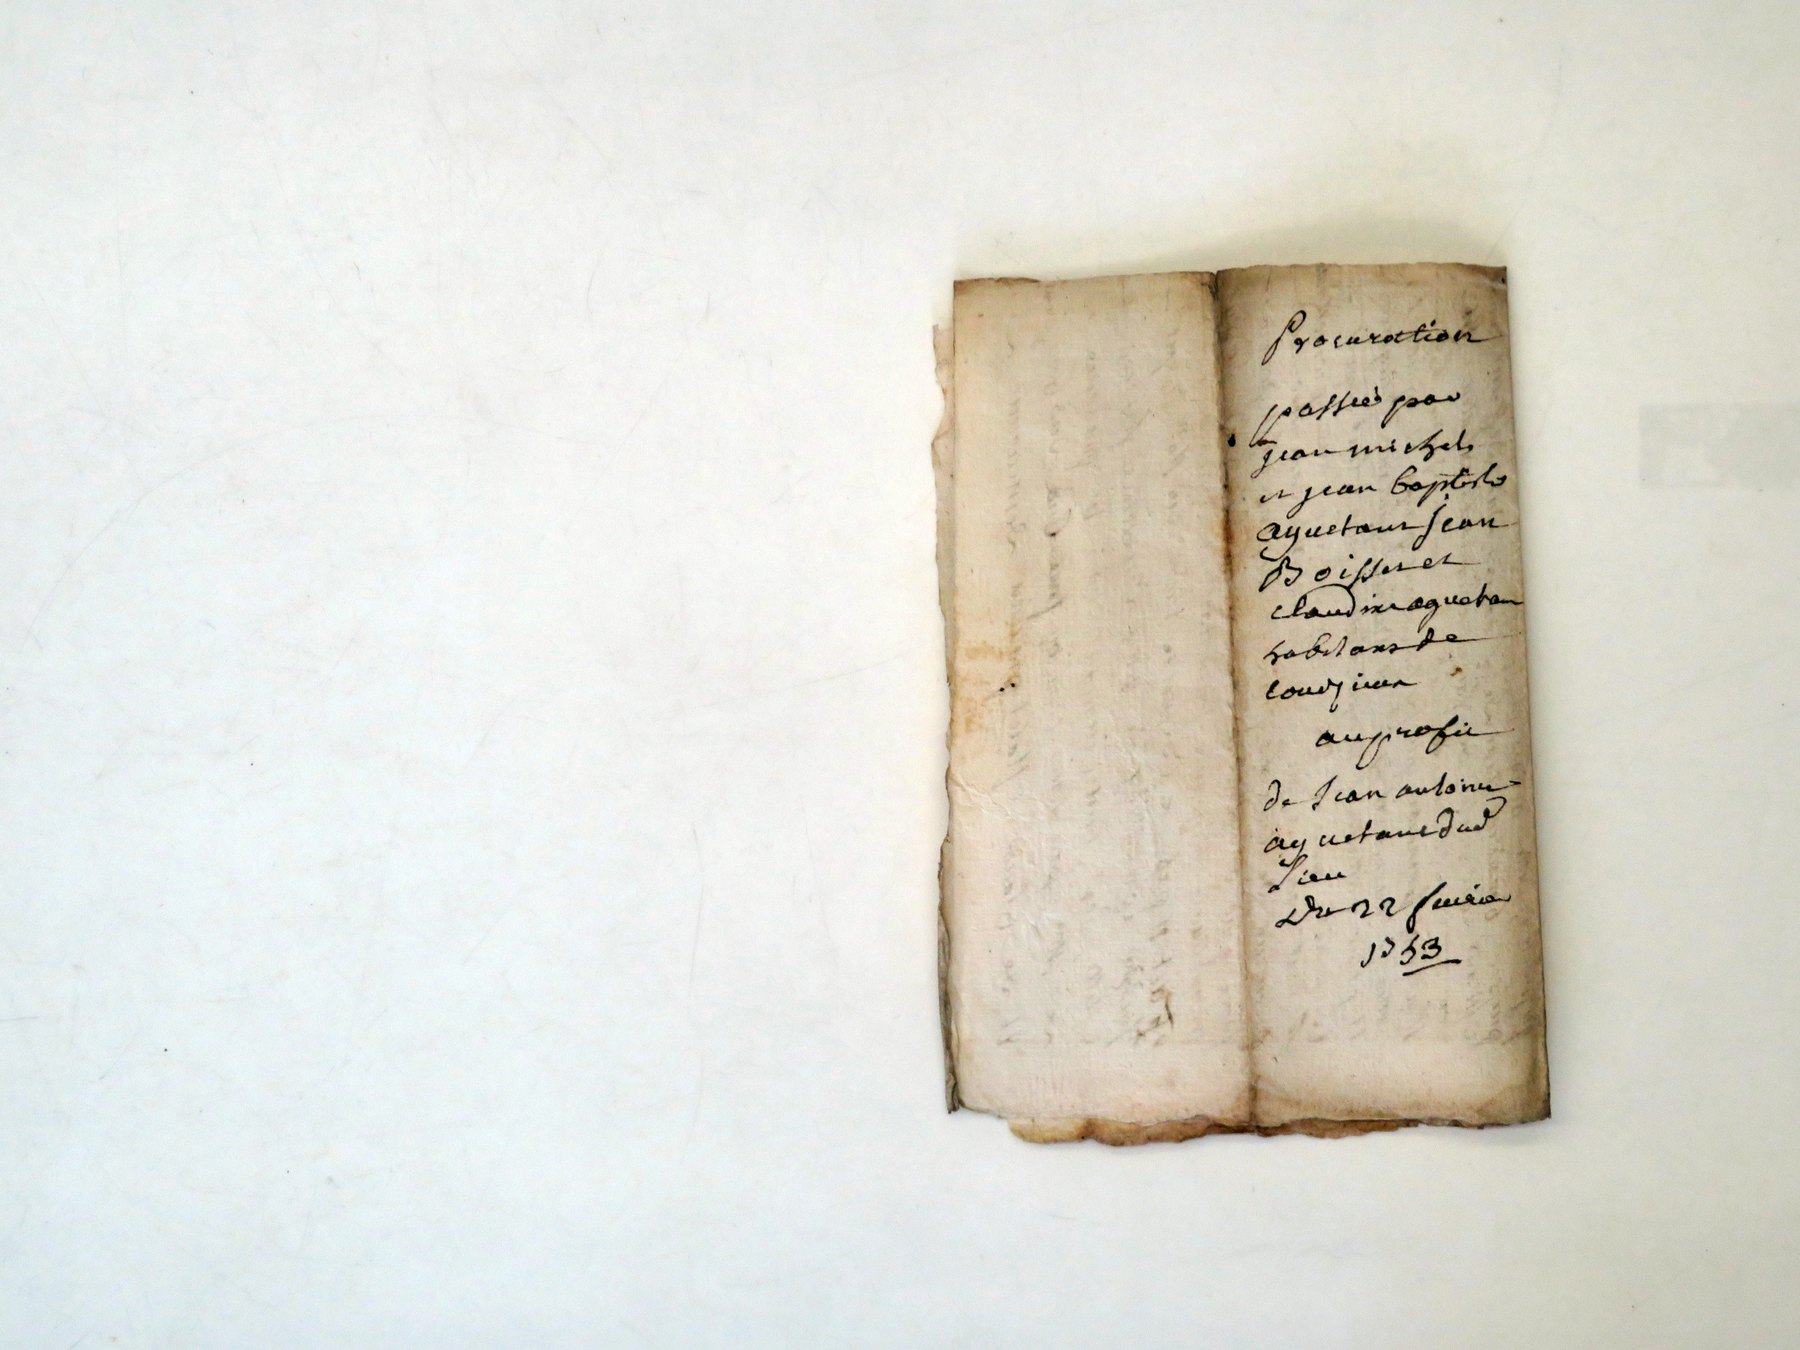 Procuration
passée par
jean michel
et jean baptiste
aguetant Jean
Boisset et
claudine aguetan
habitans de
au profit
de Jean antoine
aguetant dud
Lieu
Du 22 fevrier
1753